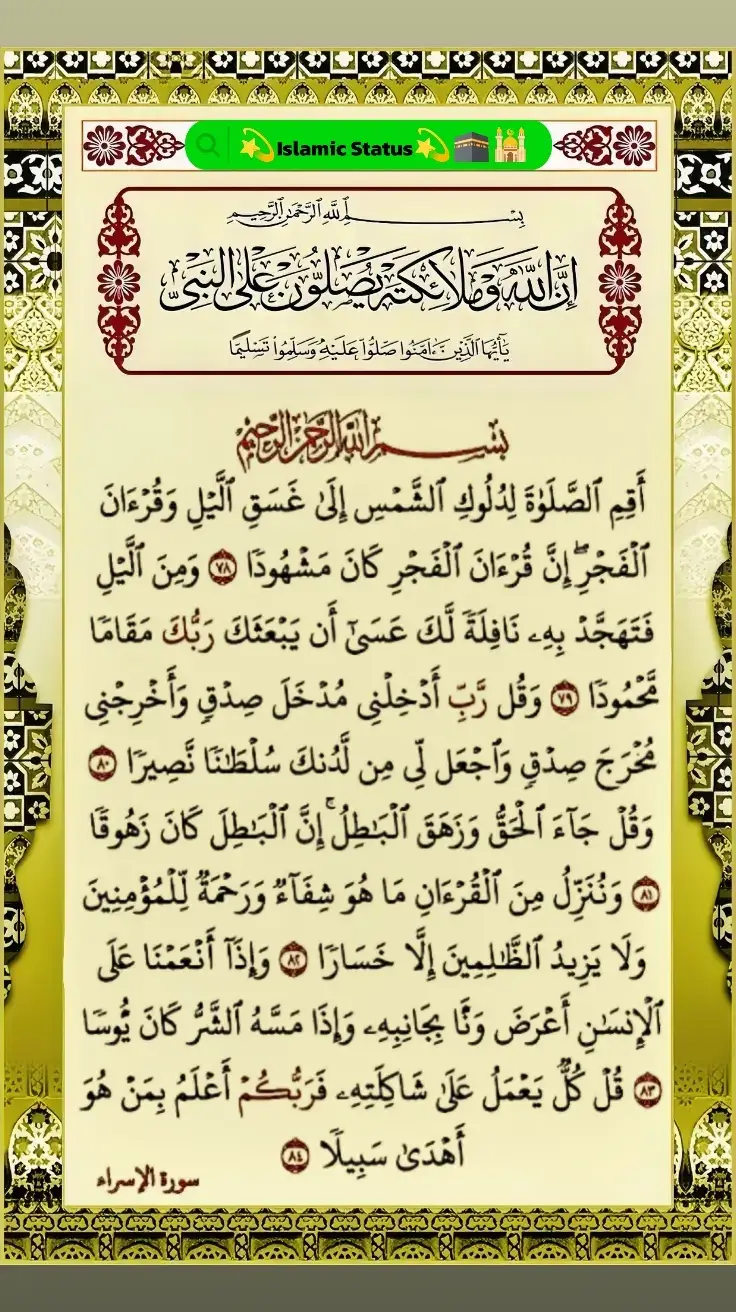 Islamic Status
بِسْمِ اللَّهِ الرَّحْمَٰنِ الرَّحِيمِ
إِنَّ اللَّهَ وَمَلَائِكَتَهُ يُصَلُّونَ عَلَى النَّبِيِّ
يَٰٓأَيُّهَا الَّذِينَ ءَامَنُوا صَلُّوا عَلَيْهِ وَسَلِّمُوا تَسْلِيمًا
بِسْمِ اللَّهِ الرَّحْمَٰنِ الرَّحِيمِ
أَقِمِ ٱلصَّلَوٰةَ لِدُلُوكِ ٱلشَّمْسِ إِلَىٰ غَسَقِ ٱلَّيْلِ وَقُرْءَانَ
ٱلْفَجْرِۖ إِنَّ قُرْءَانَ ٱلْفَجْرِ كَانَ مَشْهُودًا ٧٨ وَمِنَ ٱلَّيْلِ
فَتَهَجَّدْ بِهِۦ نَافِلَةً لَّكَ عَسَىٰٓ أَن يَبْعَثَكَ رَبُّكَ مَقَامًا
مَّحْمُودًا ٧٩ وَقُل رَّبِّ أَدْخِلْنِى مُدْخَلَ صِدْقٍ وَأَخْرِجْنِى
مُخْرَجَ صِدْقٍ وَٱجْعَل لِّى مِن لَّدُنكَ سُلْطَٰنًا نَّصِيرًا ٨٠
وَقُلْ جَآءَ ٱلْحَقُّ وَزَهَقَ ٱلْبَٰطِلُۚ إِنَّ ٱلْبَٰطِلَ كَانَ زَهُوقًا
٨١ وَنُنَزِّلُ مِنَ ٱلْقُرْءَانِ مَا هُوَ شِفَآءٌ وَرَحْمَةٌ لِّلْمُؤْمِنِينَ
وَلَا يَزِيدُ ٱلظَّٰلِمِينَ إِلَّا خَسَارًا ٨٢ وَإِذَآ أَنْعَمْنَا عَلَى
ٱلْإِنسَٰنِ أَعْرَضَ وَنَـَٔا بِجَانِبِهِۦ وَإِذَا مَسَّهُ ٱلشَّرُّ كَانَ يَـُٔوسًا
٨٣ قُلْ كُلٌّ يَعْمَلُ عَلَىٰ شَاكِلَتِهِۦ فَرَبُّكُمْ أَعْلَمُ بِمَنْ هُوَ
أَهْدَىٰ سَبِيلًا ٨٤
سورة الإسراء